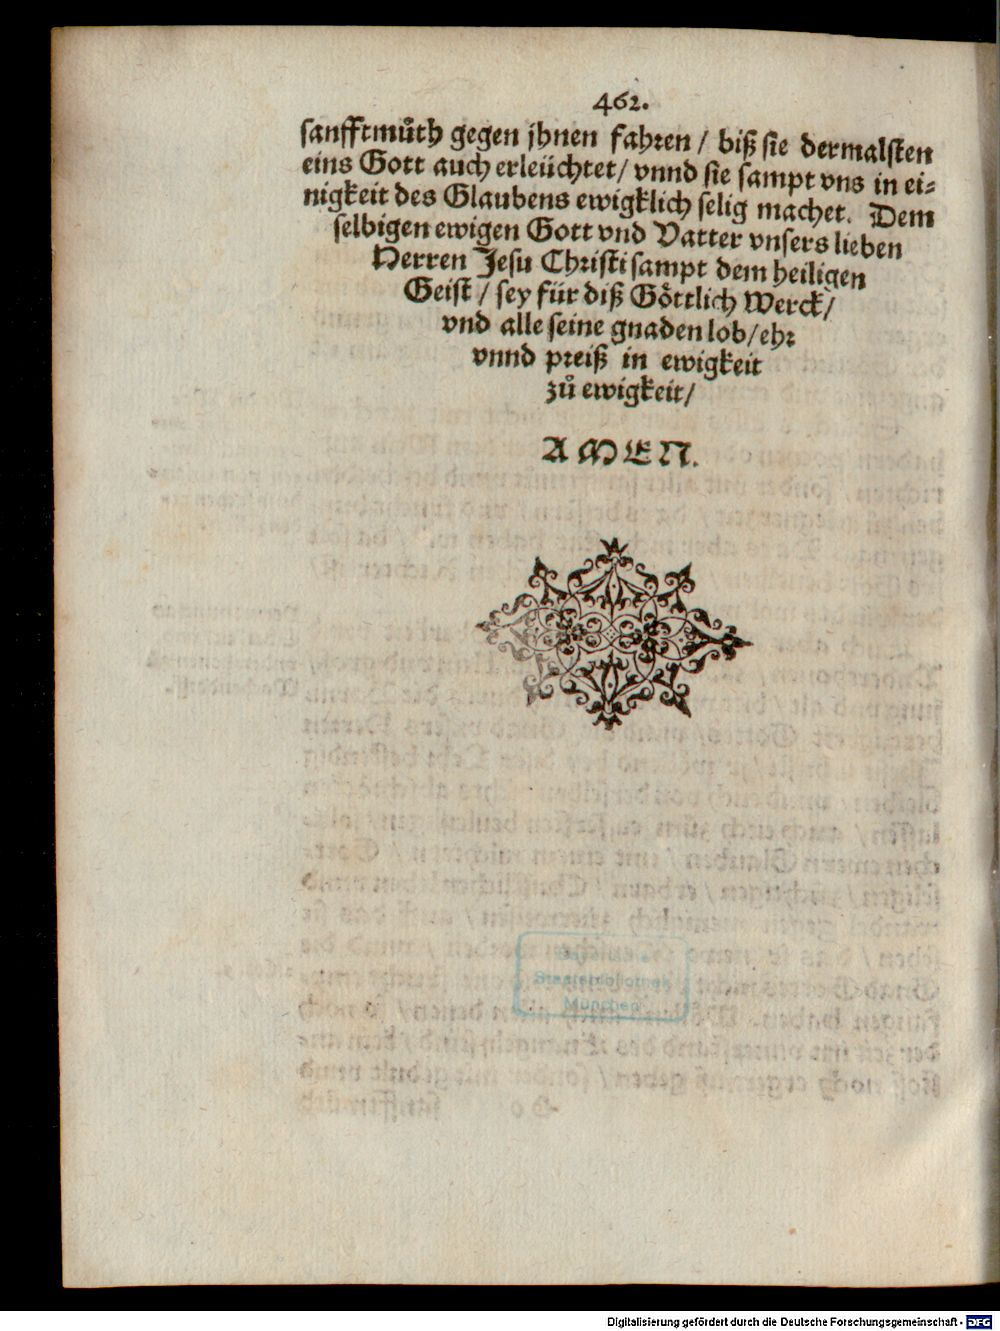 462.
sanfftmůth gegen jhnen fahren / biß sie dermalsten
eins Gott auch erleüchtet / vnnd sie sampt vns in ei⸗
nigkeit des Glaubens ewigklich selig machet. Dem
selbigen ewigen Gott vnd Vatter vnsers lieben
Herren Jesu Christi sampt dem heiligen
Geist / sey für diß Göttlich Werck /
vnd alle seine gnaden lob / ehr
vnnd preiß in ewigkeit
zů ewigkeit /
AMEN.
Staatsbibliothek
München
Digitalisierung gefördert durch die Deutsche Forschungsgemeinschaft - DFG